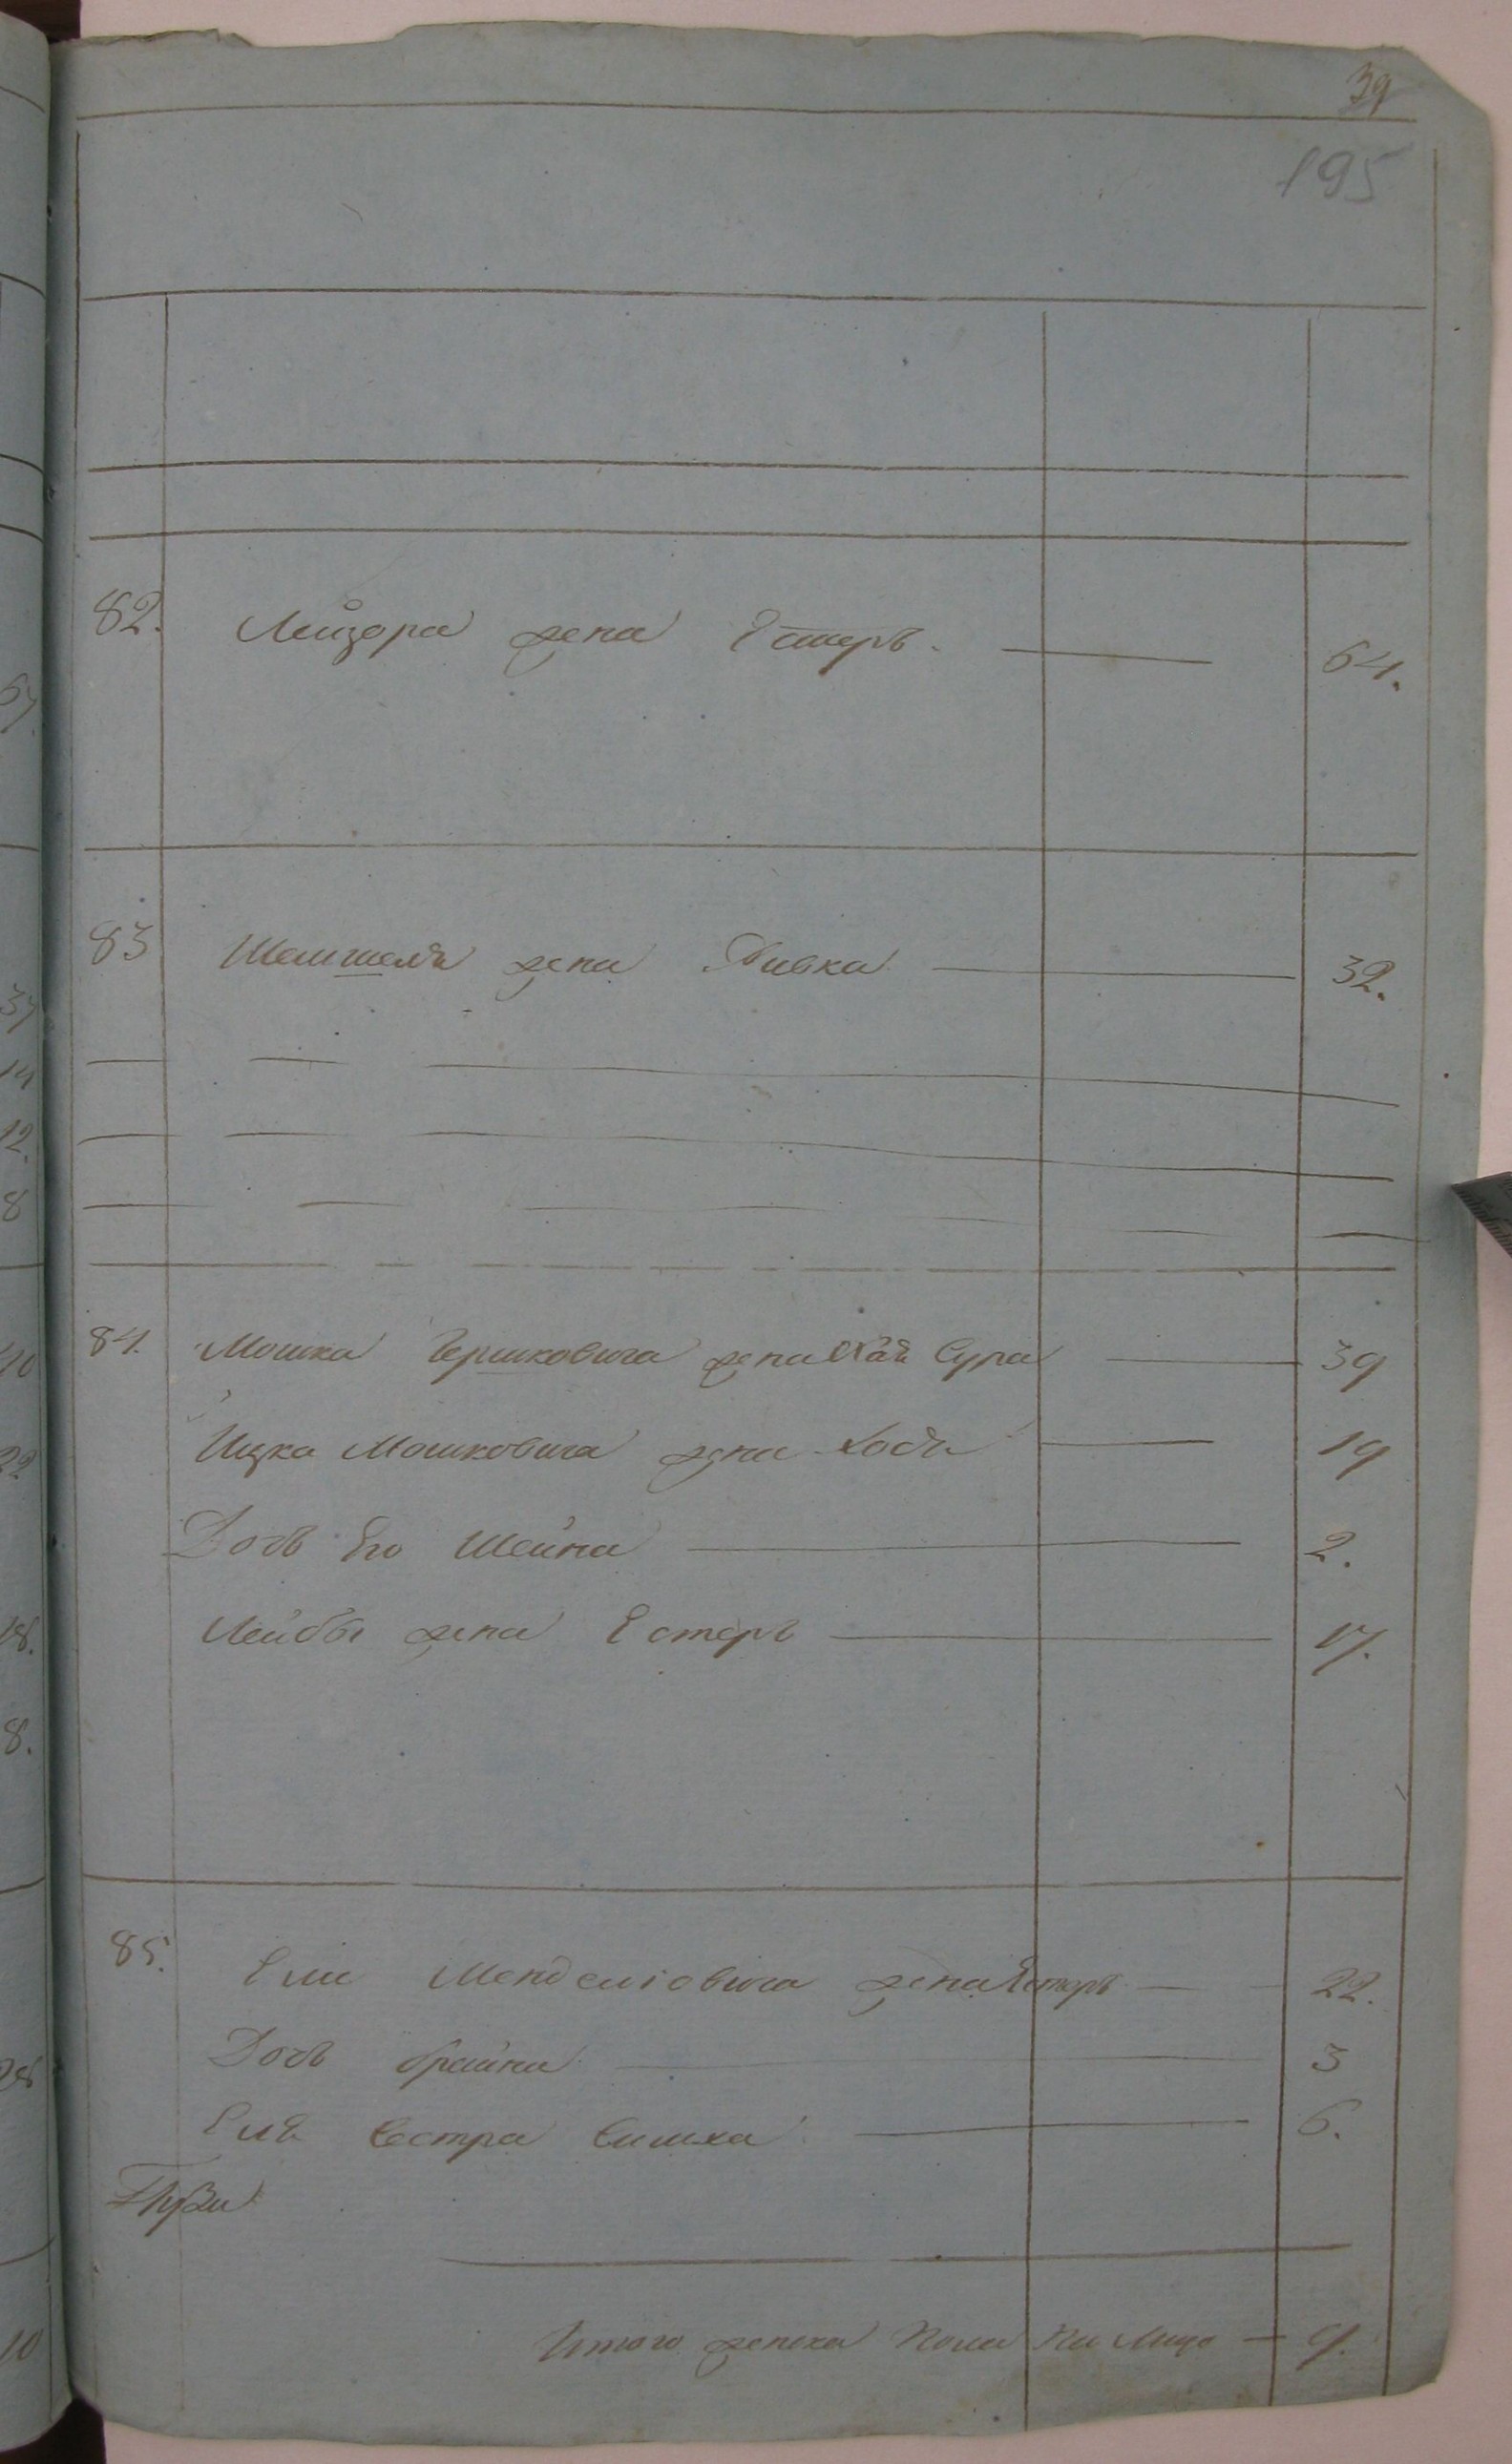 39
195
82. Лейзора жена Естеръ. 64.
83 Шемшеля жена Ривка 32.
84. Мошка Гершковича жена Хая Сура 39
Ицка Мошковича жена Хода 19
Дочь Его Шейна 2.
Лейбы жена Естеръ 17.
85. Ели Менделіовича жена Естеръ 22.
Дочь брайна 3
Еля Сестра Симха 6.
Итого женска Пола На Лицо 9.